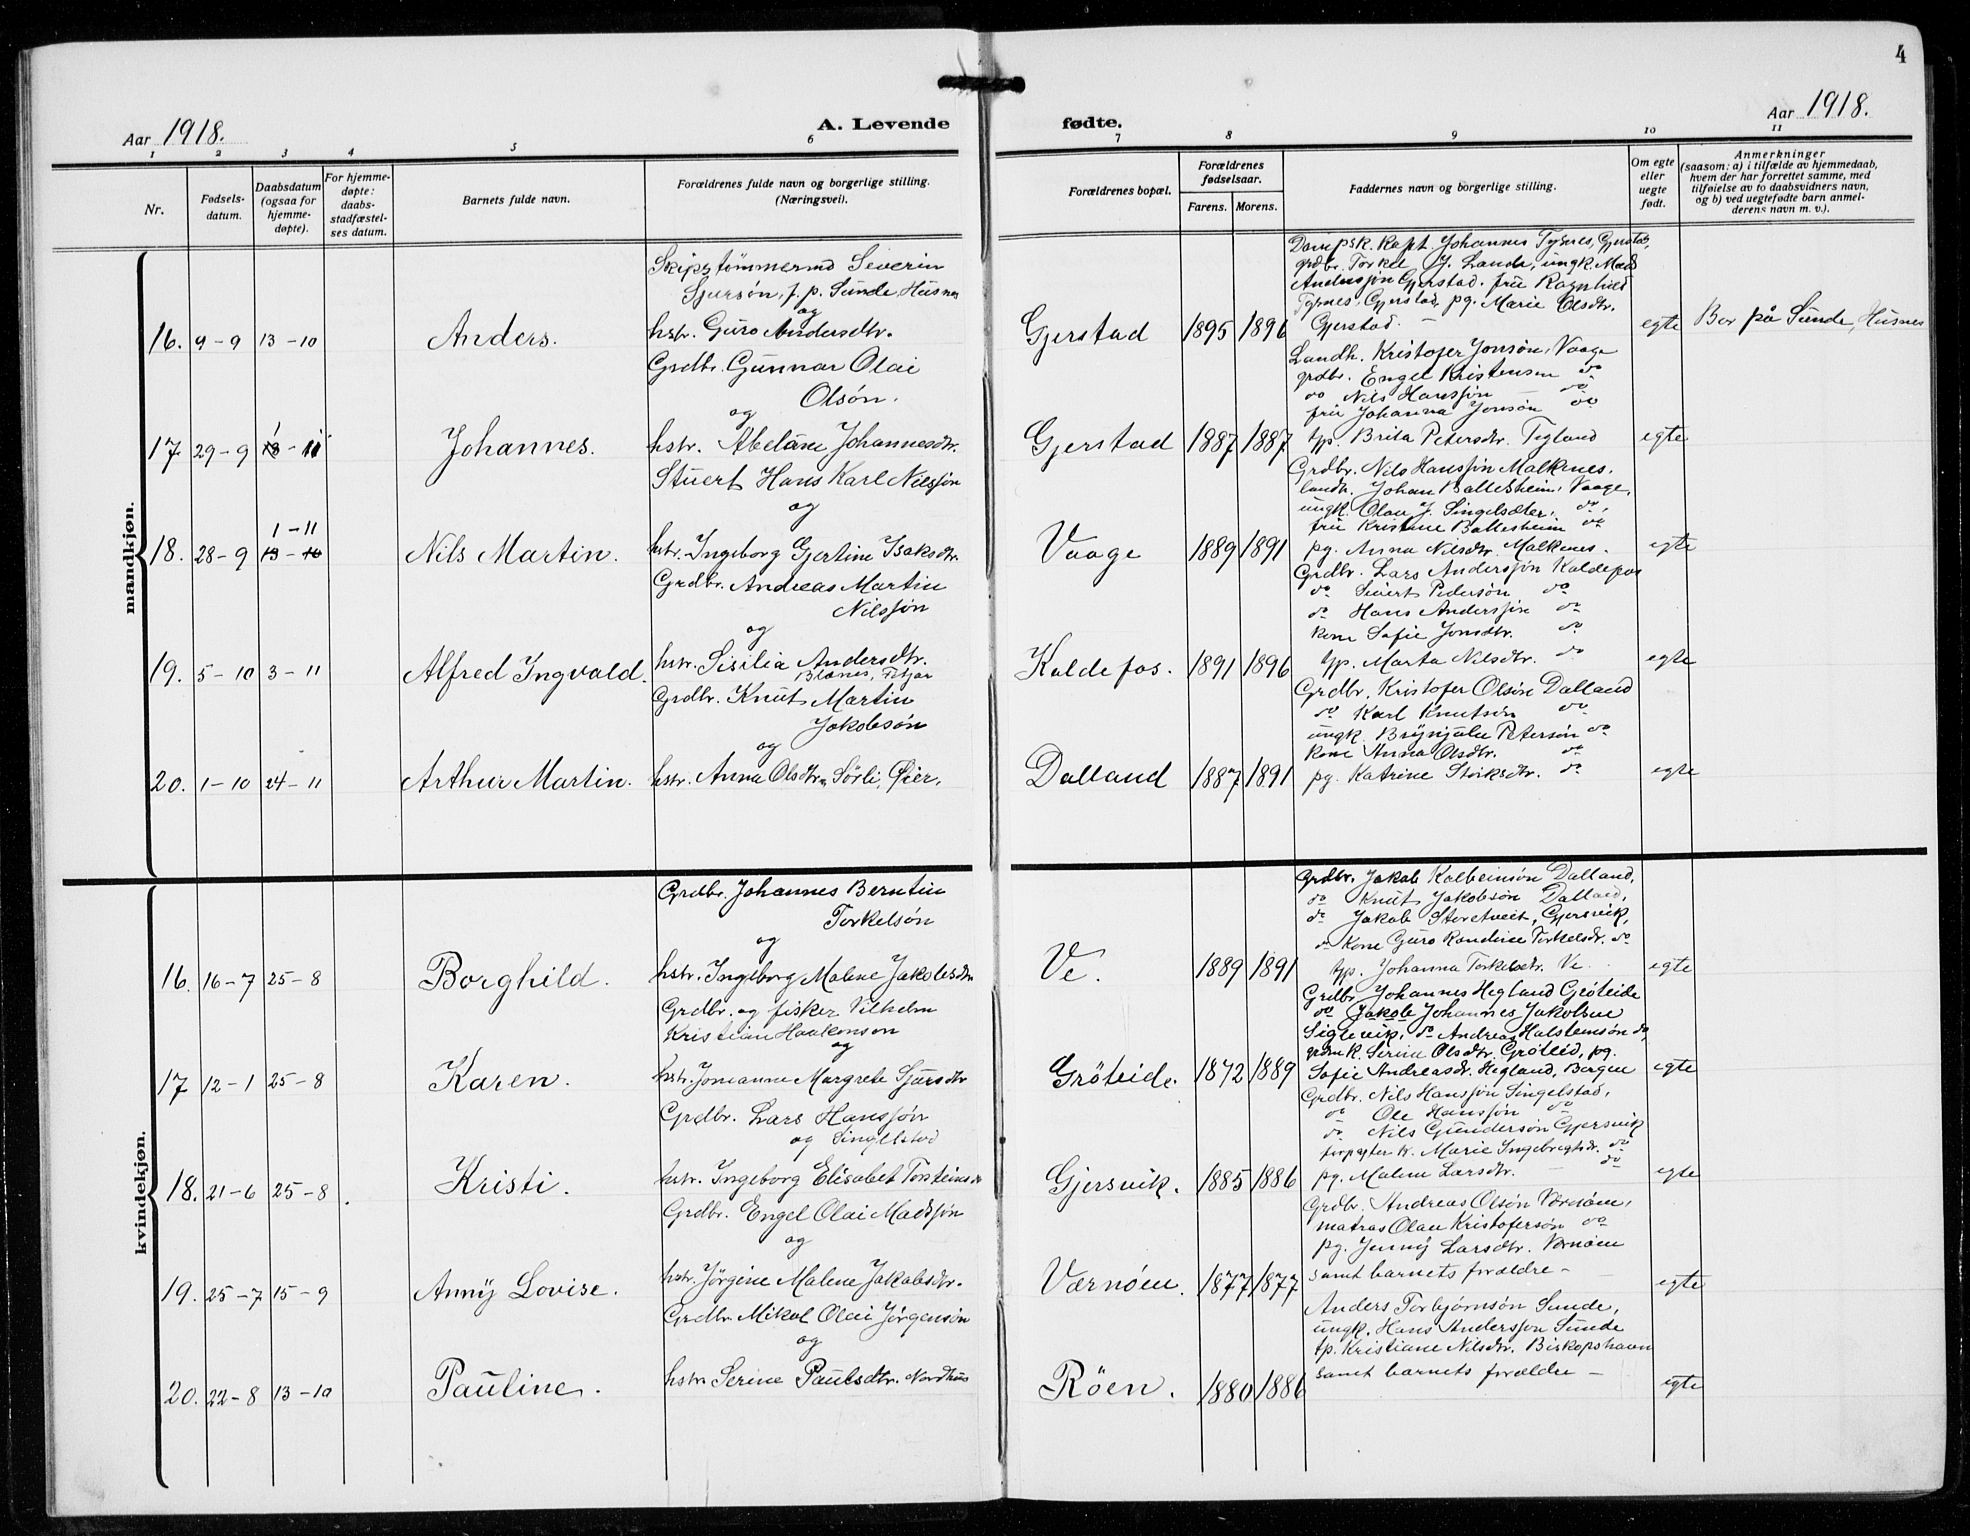 4
Aar 1918.
A. Levende
fødte.
Aar 1918.
1 2 3 4 5 6
7 8 9 10 11
Nr.
Fødsels-
datum.
Daabsdatum
(ogsaa for
hjemme-
døpte).
For hjemme-
døpte:
daabs-
stadfæstel-
ses datum.
Barnets fulde navn.
Forældrenes fulde navn og borgerlige stilling.
(Næringsvei).
Forældrenes bopæl.
Forældrenes
fødselsaar.
Farens. Morens.
Faddernes navn og borgerlige stilling.
Om egte
eller
uegte
født.
Anmerkninger
(saasom: a) i tilfælde av hjemmedaab,
hvem der har forrettet samme, med
tilføielse av to daabsvidners navn,
og b) ved uegtefødte barn anmel-
derens navn m. v.).
mandkjøn.
16. 9-9 13-10
Anders.
Skipstømmermd Severin
Sjursøn, f. p. Sunde, Husnes
og
hstr. Guro Andersdtr.
Gjerstad 1895 1896
Dampsk. Kapt. Johannes Tysnes, Gjerstad,
grdbr. Torkel J. Lande, ungk. Mads
Anderssøn Gjerstad. frue Ragnhild
Tysnes, Gjerstad, pg. Marie Olsdtr.
Gjerstad. —
egte
Bor på Sunde, Husnes
17 29-9 1-11
Johannes.
Grdbr. Gunnar Olai
Olsøn.
og
hstr. Abeläne Johannesdtr.
Gjerstad 1887 1887
Landh. Kristofer Jonsøn, Vaage
grdbr. Engel Kristensen do
do Nils Hanssøn — do
frue Johanna Jonsøn do
tp. Brita Petersdtr. Tegland
egte
18. 28-9 1-11
13-10
Nils Martin.
Stuert Hans Karl Nilssøn
og
hstr. Ingeborg Gertine Isaksdtr.
Vaage 1889 1891
Grdbr. Nils Hanssøn Malkenes.
landh. Johan Ballesheim, Vaage,
ungk. Olav J. Singelsæter, do,
frue Kristine Ballesheim do
pg. Anna Nilsdtr. Malkenes.
egte
19. 5-10 3-11
Alfred Ingvald.
Grdbr. Andreas Martin
Nilssøn
og
hstr. Sisilia Andersdtr.
Blænes, Fitjar
Kaldefos. 1891 1896
Grdbr. Lars Anderssøn Kaldefos
do Sivert Pedersøn do
do Hans Anderssøn do
kone Sofie Jonsdtr. do
tp. Marta Nilsdtr. do
egte
20. 1-10 24-11
Arthur Martin.
Grdbr. Knut Martin
Jakobsøn
og
hstr. Anna Olsdtr. Sørli, Øier,
Dalland 1887 1891
Grdbr. Kristofer Olsøn Dalland
do Karl Knutsøn do
ungk. Brynjulv Petersøn do
kone Anna Olsdtr. do
pg. Katrine do
egte
kvindekjøn.
16. 16-7 25-8
Borghild.
Grdbr. Johannes Berntin
Torkelsøn
og
hstr. Ingeborg Malene Jakobsdtr
Ve. 1889 1891
Grdbr. Jakob Kolbeinsøn Dalland,
do Knut Jakobsøn Dalland,
do Jakob Storetveit, Gjersvik,
do Kone Guro Randine Torkelsdtr. do
tp. Johanna Torkelsdtr. Ve
egte
17 12-1 25-8
Karen.
Grdbr. og fisker Vilhelm
Kristian Haakonson
og
hstr. Johanne Margrete Sjursdtr
Grøteide. 1872 1889
Grdbr. Johannes Hegland Grøteide
do Jakob Johannes Jakobsen
Siglevik, do Andreas Halstensøn do,
grdmk. Serine Olsdtr. Grøteid, pg.
Sofie Andreasdtr. Hegland, Bergen
egte
18. 21-6 25-8
Kristi.
Grdbr. Lars Hanssøn
og Singelstad
hstr. Ingeborg Elisabet Torsteinsdtr
Gjersvik. 1885 1886
Grdbr. Nils Hanssøn Singelstad,
do Ole Hanssøn do
do Nils Gundersøn Gjersvik
forpagter k. Marie Ingebregtsdtr. do
pg. Malene Larsdtr. — do
egte
19. 25-7 15-9
Anny Lovise.
Grdbr. Engel Olai Madssøn
og
hstr. Jørgine Malene Jakobsdtr.
Værnøen. 1877 1877
Grdbr. Andreas Olsøn Værnøen,
matros Olav Kristofersøn do
pg. Jenny Larsdtr. Værnøen
samt barnets forældre —
egte
20. 22-8 13-10
Pauline.
Grdbr. Mikal Olai Jørgensøn
og
hstr Serine Paulsdtr. Nordhus
Røen. 1880 1886
Anders Torbjørnsøn Sunde,
ungk. Hans Anderssøn Sunde
tp. Kristiane Nilsdtr. Biskopshavn
samt barnets forældre —
egte